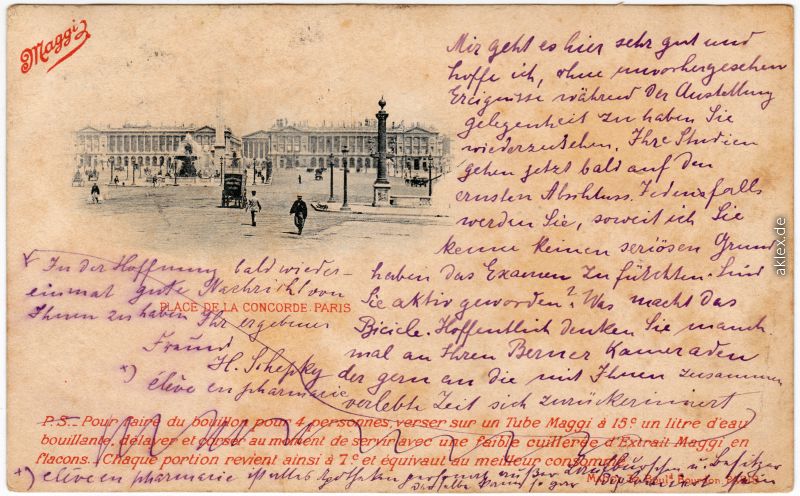 Maggi
Mir geht es hier sehr gut und
hoffe ich, ohne unvorhergesehen
Ereignisse während der Austellung
gelegenheit zu haben Sie
wiederzusehen. Ihre Studien
gehen jetzt bald auf den
ernsten Abschluss. Jedenfalls
werden Sie, soweit ich Sie
kenne keinen seriösen Grund
haben das Examen zu fürchten. Sind
Sie aktiv geworden? Was macht das
Bicicle. Hoffentlich denken Sie manch
mal an Ihren Berner Kameraden
der gern an die mit Ihnen zusammen
verlebte Zeit sich zurückerinnert
In der Hoffnung bald wieder-
einmal gute Nachricht von
Ihnen zu haben Ihr ergebener
Freund
H. Schepky
+) élève en pharmacie
PLACE DE LA CONCORDE. PARIS
P.S. Pour faire du bouillon pour 4 personnes, verser sur un Tube Maggi à 15c un litre d'eau
bouillante, délayer et corser au moment de servir avec une faible cuillerée d'Extrait Maggi en
flacons. Chaque portion revient ainsi à 7c et équivaut au meilleur consommé.
+) élève en pharmacie ist
akpool.de